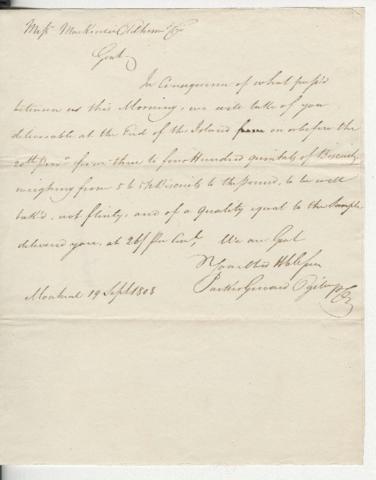 Messrs Mackenzie Oldham & Co
Gent.
In Consequence of what pass'd
between us this Morning, we will take of you
deliverable at the End of the Island from on or before the
20th from three to four Hundred quintals of Biscuit,
weighing from 5 to 5½ Biscuits to the pound, to be well
bak'd, not flinty, and of a quality equal to the Sample
delivered you, at 26/ Per Cwt, We are Gent
Your Obed Hble Ser
Parker Gerrard Ogilvy & Co
Montreal 19 Sept 1808